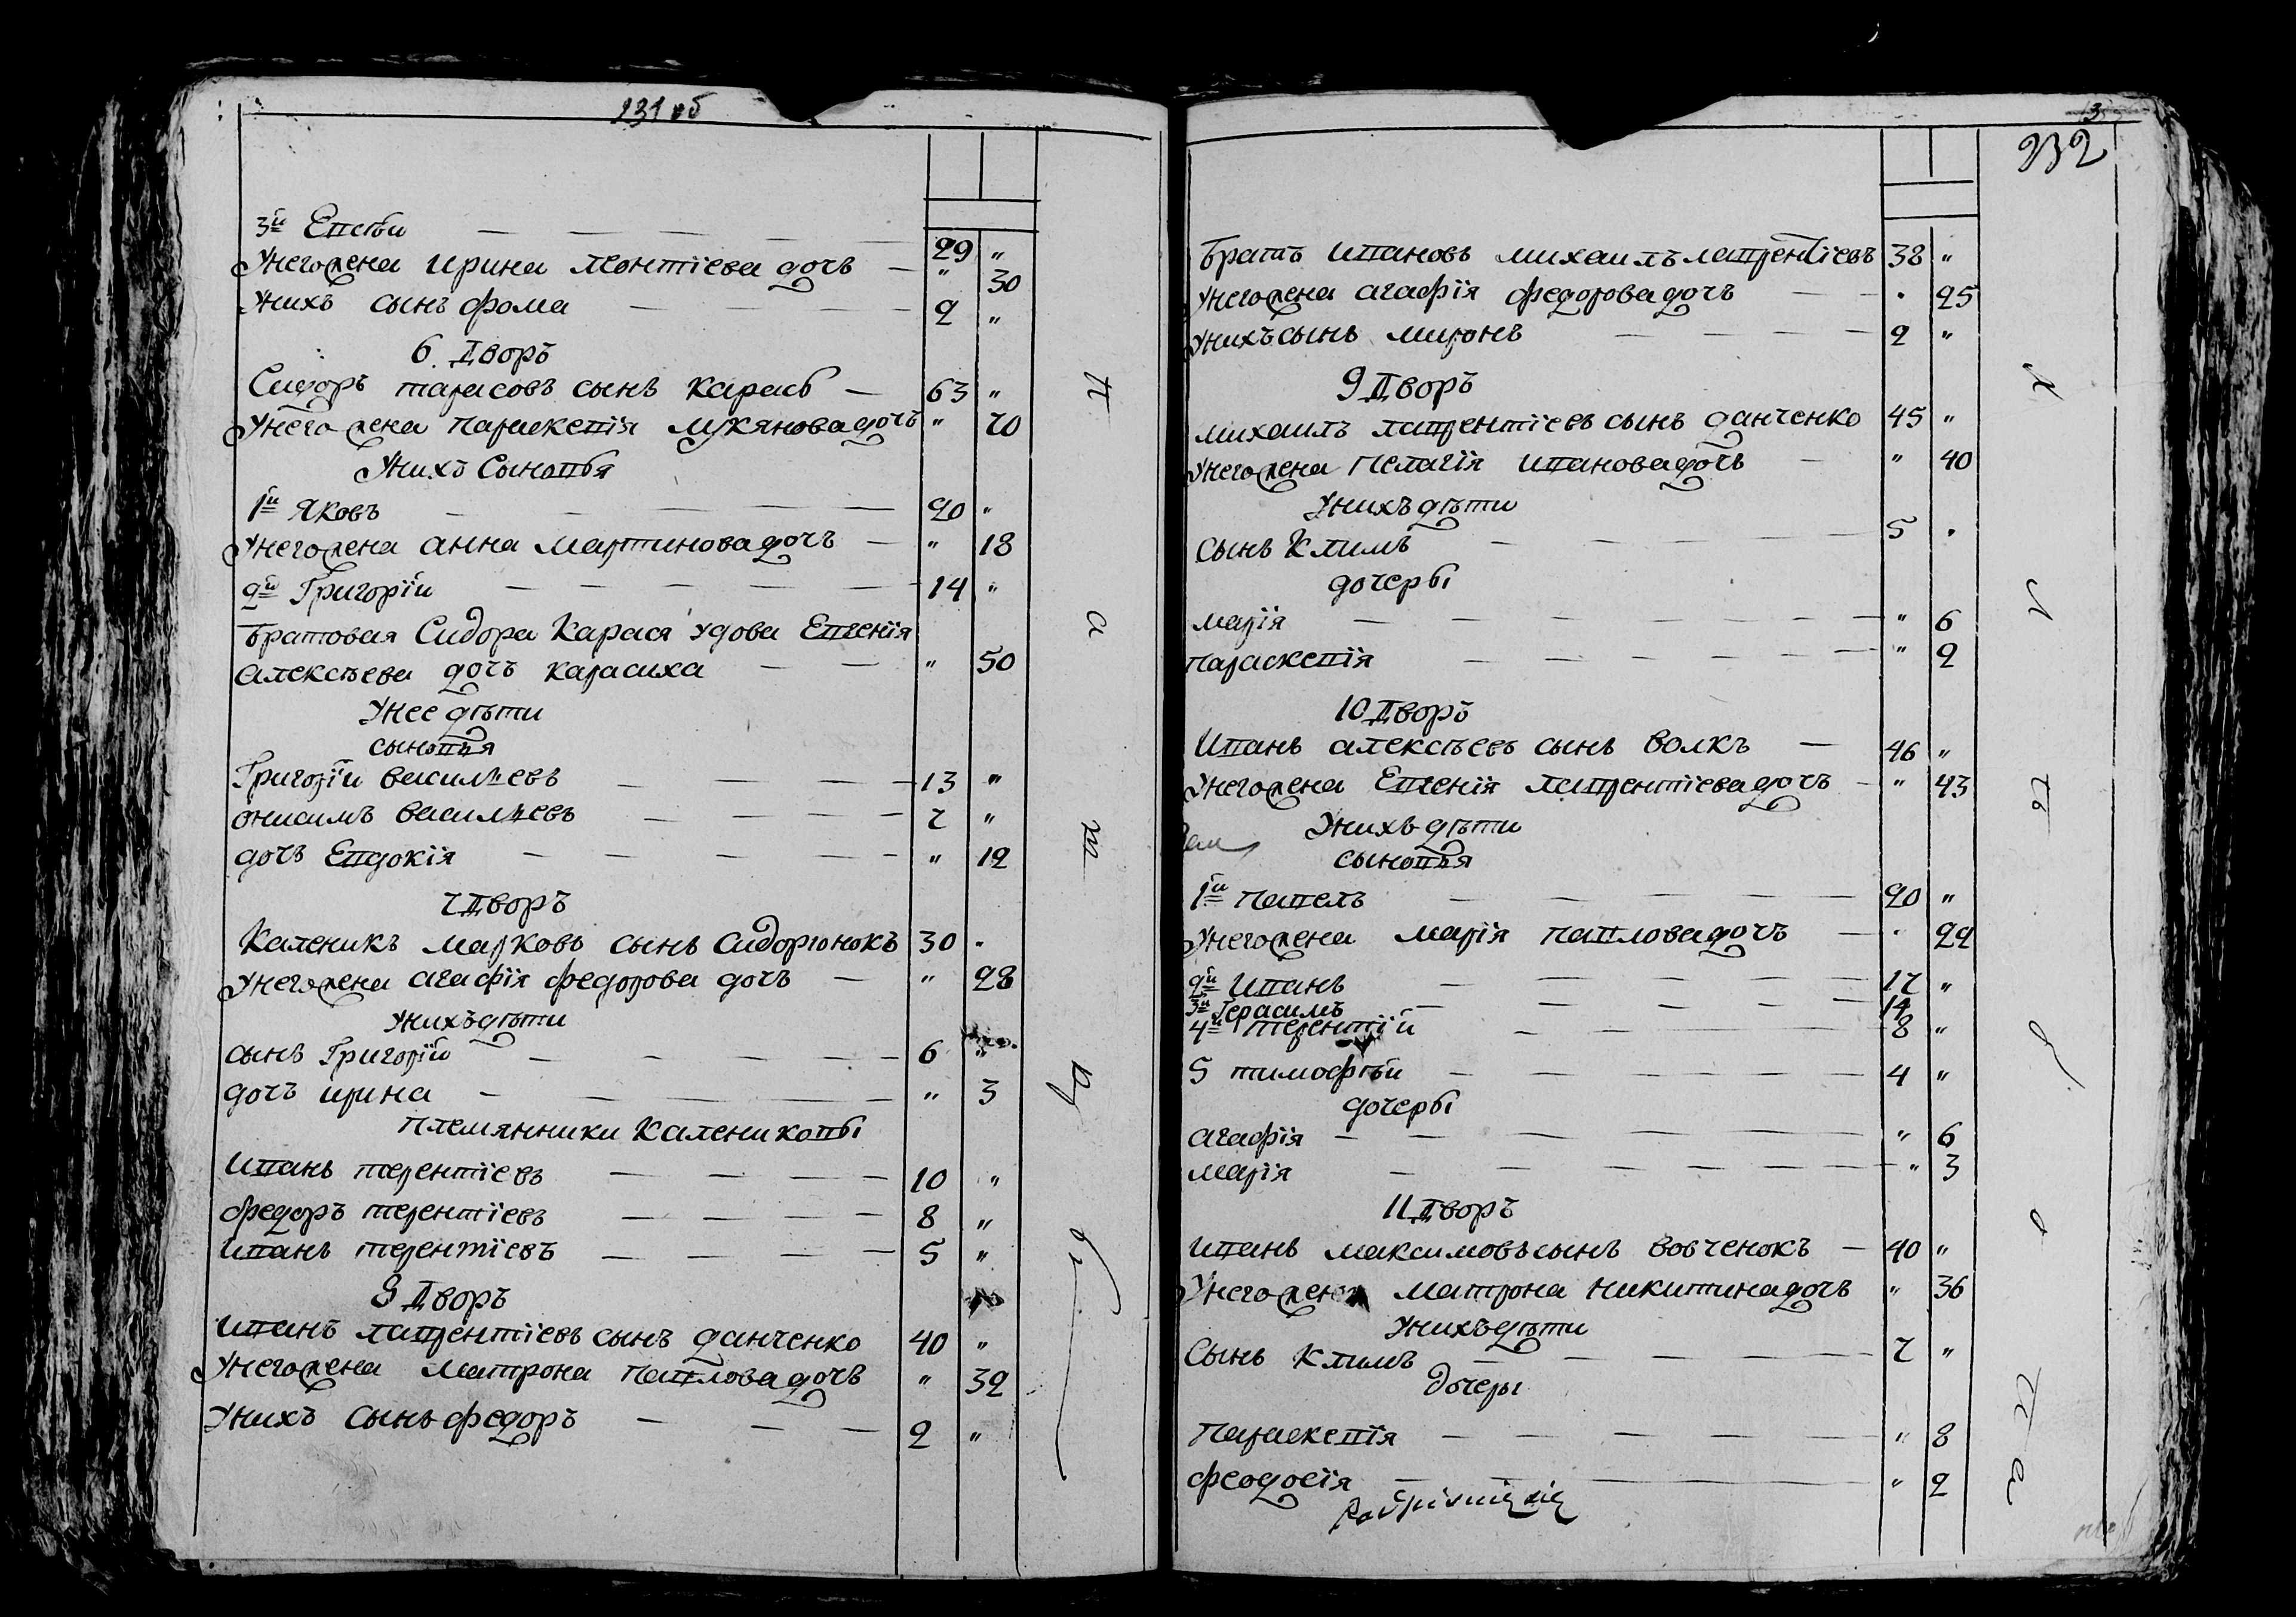 231 об
3й Евсѣй — 29 „
Унего жена Ирина Леонтіева дочь — „ 30
Унихъ сынъ Фома — 2 „
6 Дворъ
Сидоръ Тарасовъ сынъ Карась — 63 „
Унего жена Параскевія Лукянова дочь „ 70
Унихъ Сыновья
1й Яковъ — 20 „
Унего жена Анна Мартинова дочь — „ 18
2й Григорій — 14 „
Братовая Сидора Карася удова Евгенія
Алексѣева дочь Карасиха — „ 50
Унее дѣти
сыновья
Григорій Васильевъ — 13 „
Онисимъ Васильевъ — 7 „
дочь Евдокія — „ 12
7 Дворъ
Каленикъ Марковъ сынъ Сидорюнокъ 30 „
Унего жена Агафія Федорова дочь — „ 28
Унихъ дѣти
сынъ Григорій — 6 „
дочь Ирина — „ 3
Племянники Калениковы
Иванъ Терентіевъ — 10 „
Федоръ Терентіевъ — 8 „
Иванъ Терентіевъ — 5 „
8 Дворъ
Иванъ Лаврентіевъ сынъ Данченко 40 „
Унего жена Матрона Павлова дочь „ 32
Унихъ Сынъ Федоръ — 2 „
232
Братъ Ивановъ Михаилъ Лаврентіевъ 38 „
Унего жена Агафія Федорова дочь — „ 25
Унихъ сынъ Миронъ — 2 „
9 Дворъ
Михаилъ Лаврентіевъ сынъ Данченко 45 „
Унего жена Пелагія Иванова дочь — „ 40
Унихъ дѣти
Сынъ Климъ — 5 „
дочеры
Марія — „ 6
Параскевія — „ 2
10 Дворъ
Иванъ Алексѣевъ сынъ Волкъ — 46 „
Унего жена Евгенія Лаврентіева дочь — „ 43
Унихъ дѣти
сыновья
1й Павелъ — 20 „
Унего жена Марія Павлова дочь — „ 22
2й Иванъ — 17 „
3й Герасимъ — 14
4й Терентій — 8 „
5 Тимофѣй — 4 „
дочеры
Агафія — „ 6
Марія — „ 3
11 Дворъ
Иванъ Максимовъ сынъ Вовченокъ — 40 „
Унего жена Матрона Никитина дочь „ 36
Унихъ дѣти
Сынъ Климъ — 7 „
дочеры
Параскевія — „ 8
Феодосія — „ 2